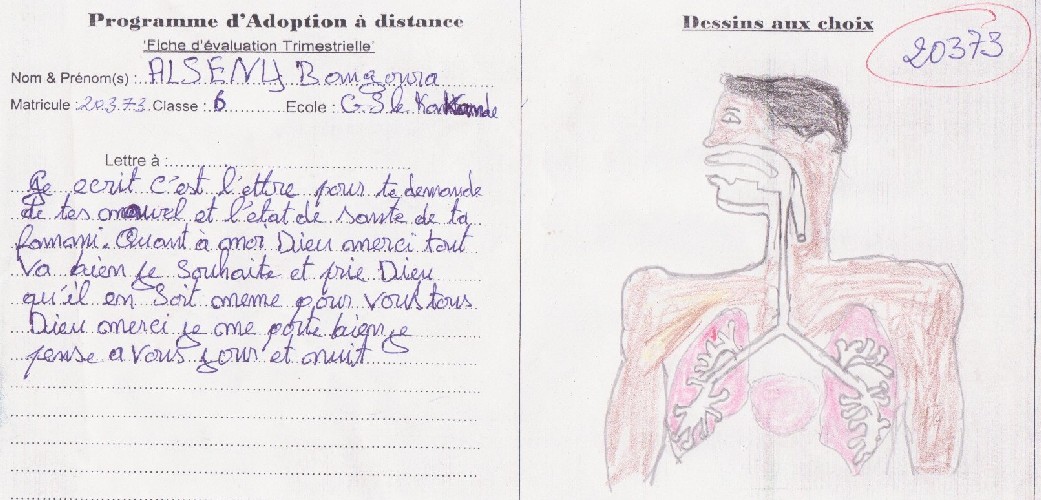 Programme d'Adoption à distance
'Fiche d'évaluation Trimestrielle'
Nom & Prénom(s) : ALSENY Bangoura
Matricule : 20373 Classe : 6 Ecole : G S le
Lettre à :
Je ecrit c'est l'ettre pour te demande
de tes nouvel et l'état de sante de ta
famami. Quant à moi Dieu merci tout
va bien je souhaite et prie Dieu
qu'il en soit meme pour vous tous
Dieu merci je me porte bien je
pense a vous jour et nuit
Dessins aux choix
20373